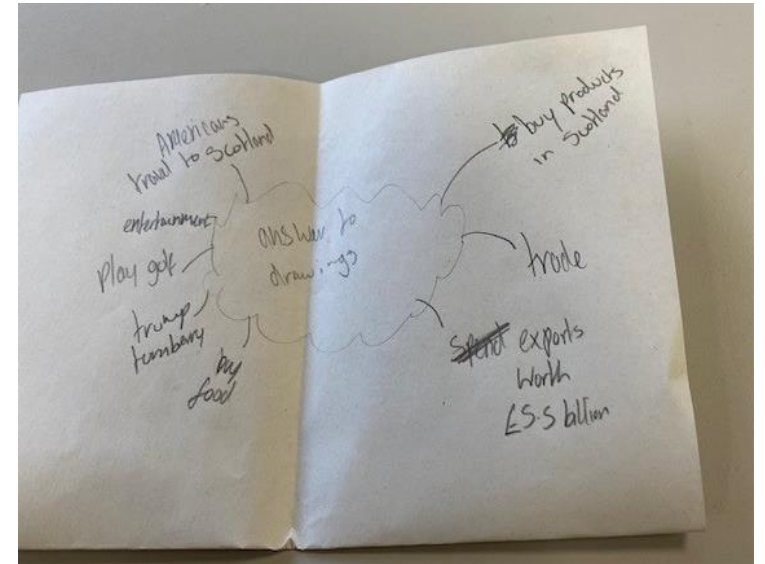 Americans
travel to Scotland
entertainment
play golf
trump
turnbarry
buy
food
answer to
drawings
buy products
in Scotland
trade
spend exports
worth
£5.5 billion